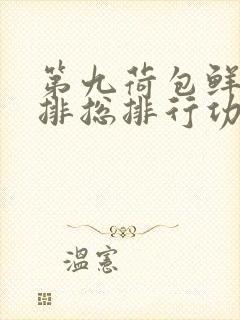 第九荷包鲜
排总排行功
温宪